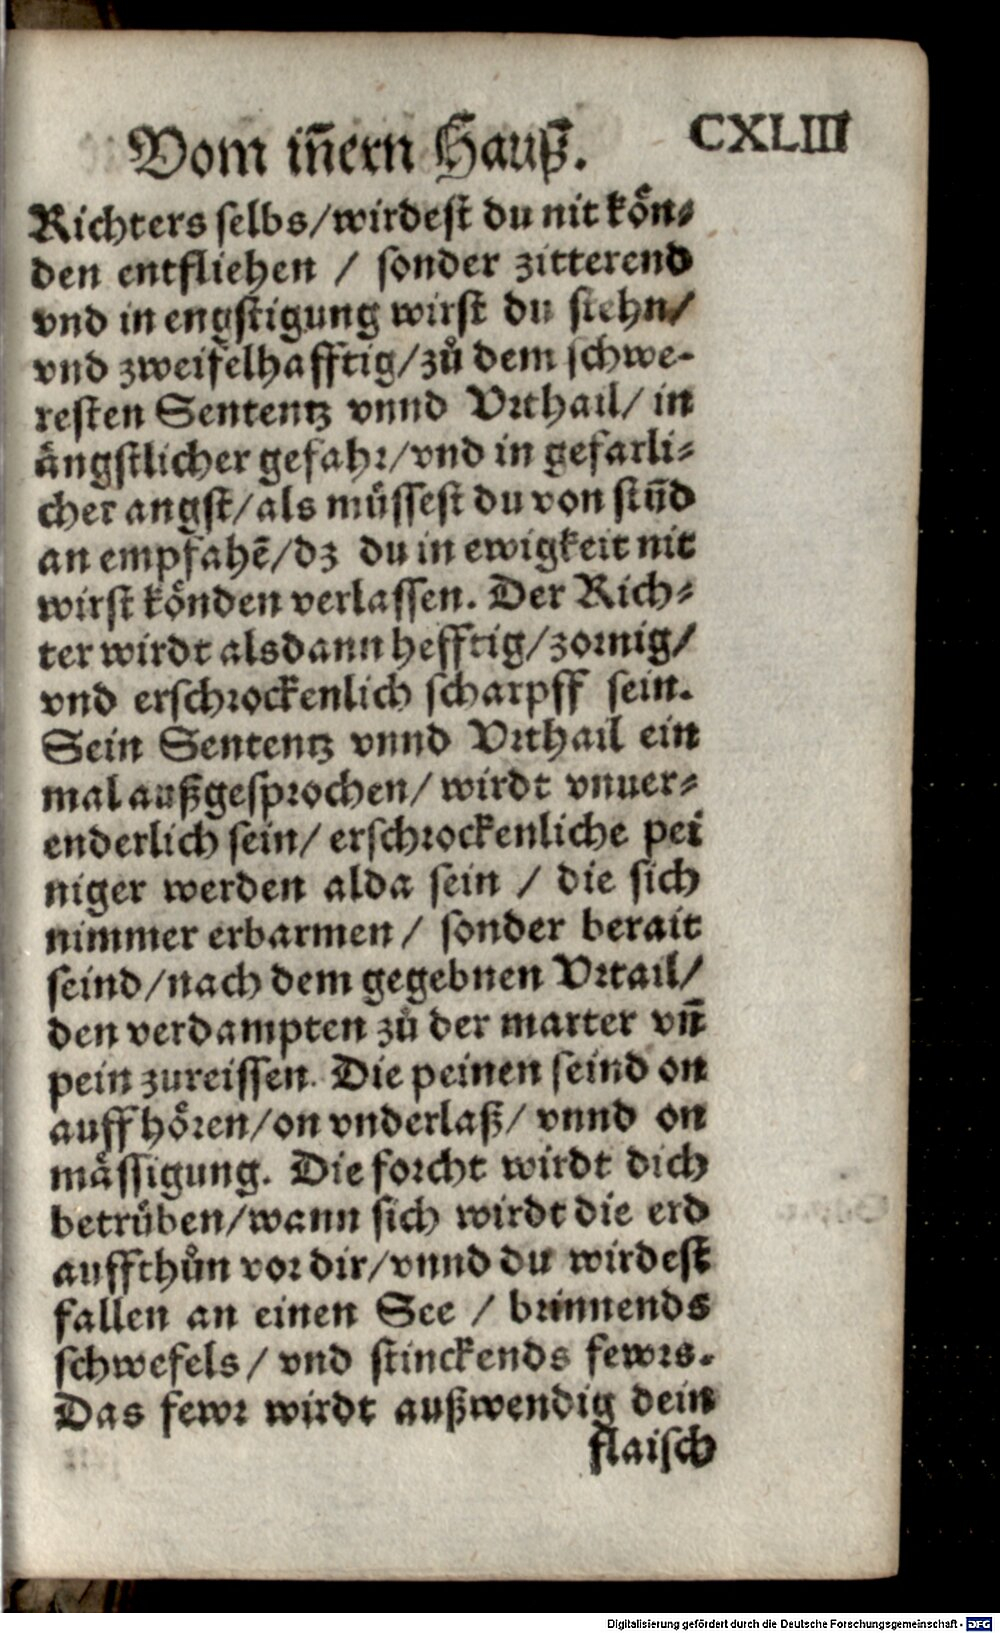 Vom iñern Hauß.
CXLIII
Richters selbs/wirdest du nit kön⸗
den entfliehen / sonder zitterend
vnd in engstigung wirst du stehn/
vnd zweifelhafftig/zů dem schwe-
resten Sententz vnnd Vrthail/ in
ängstlicher gefahr/vnd in gefarli⸗
cher angst/als müssest du von stūd
an empfahē/dz du in ewigkeit nit
wirst könden verlassen. Der Rich⸗
ter wirdt alsdann hefftig/zornig/
vnd erschrockenlich scharpff sein.
Sein Sententz vnnd Vrthail ein
mal außgesprochen/ wirdt vnuer⸗
enderlich sein/ erschrockenliche pei
niger werden alda sein / die sich
nimmer erbarmen/ sonder berait
seind/nach dem gegebnen Vrtail/
den verdampten zů der marter vñ
pein zureissen. Die peinen seind on
auffhören/on vnderlaß/ vnnd on
mässigung. Die forcht wirdt dich
betrüben/wann sich wirdt die erd
auffthůn vor dir/vnnd du wirdest
fallen an einen See / brinnends
schwefels/ vnd stinckends fewrs.
Das fewr wirdt außwendig dein
flaisch
Digitalisierung gefördert durch die Deutsche Forschungsgemeinschaft - DFG